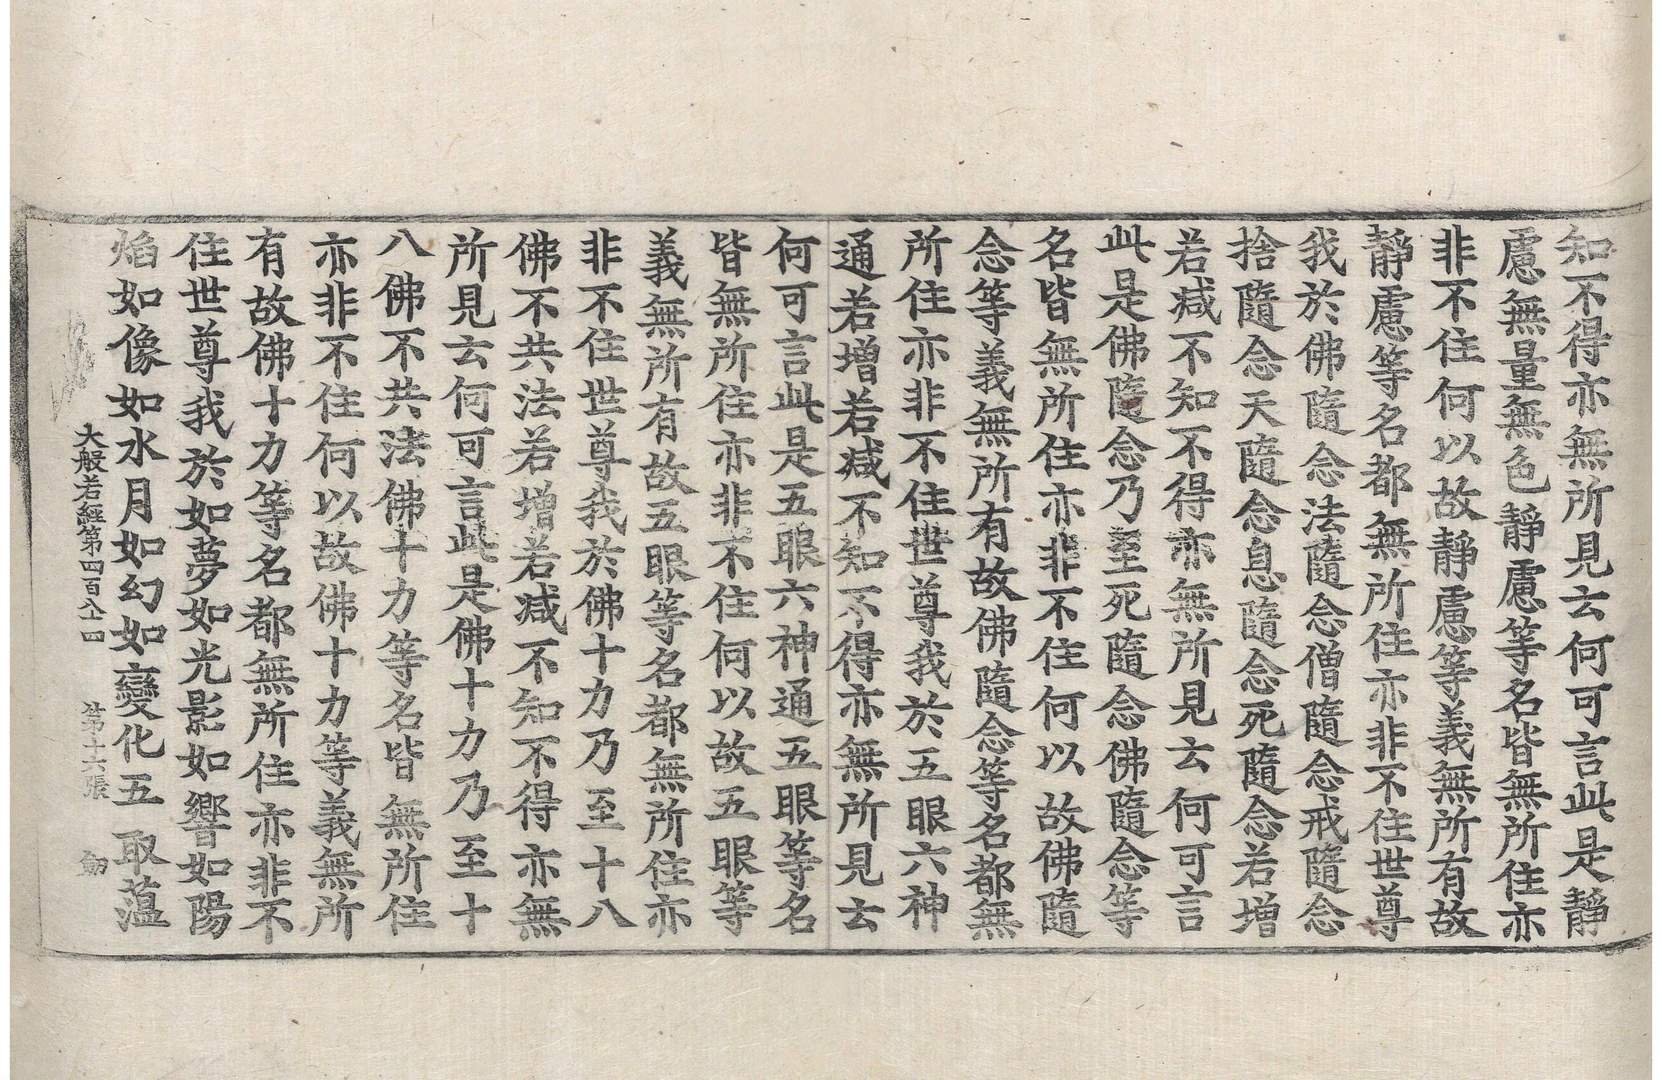 知不得亦無所見云何可言此是靜
慮無量無色靜慮等名皆無所住亦
非不住何以故靜慮等義無所有故
靜慮等名都無所住亦非不住世尊
我於佛隨念法隨念僧隨念戒隨念
捨隨念天隨念息隨念死隨念若增
若減不知不得亦無所見云何可言
此是佛隨念乃至死隨念佛隨念等
名皆無所住亦非不住何以故佛隨
念等義無所有故佛隨念等名都無
所住亦非不住世尊我於五眼六神
通若增若減不知不得亦無所見云
何可言此是五眼六神通五眼等名
皆無所住亦非不住何以故五眼等
義無所有故五眼等名都無所住亦
非不住世尊我於佛十力乃至十八
佛不共法若增若減不知不得亦無
所見云何可言此是佛十力乃至十
八佛不共法佛十力等名皆無所住
亦非不住何以故佛十力等義無所
有故佛十力等名都無所住亦非不
住世尊我於如夢如光影如響如陽
焰如像如水月如幻如變化五取蘊
大般若經第四百八四 第十六張